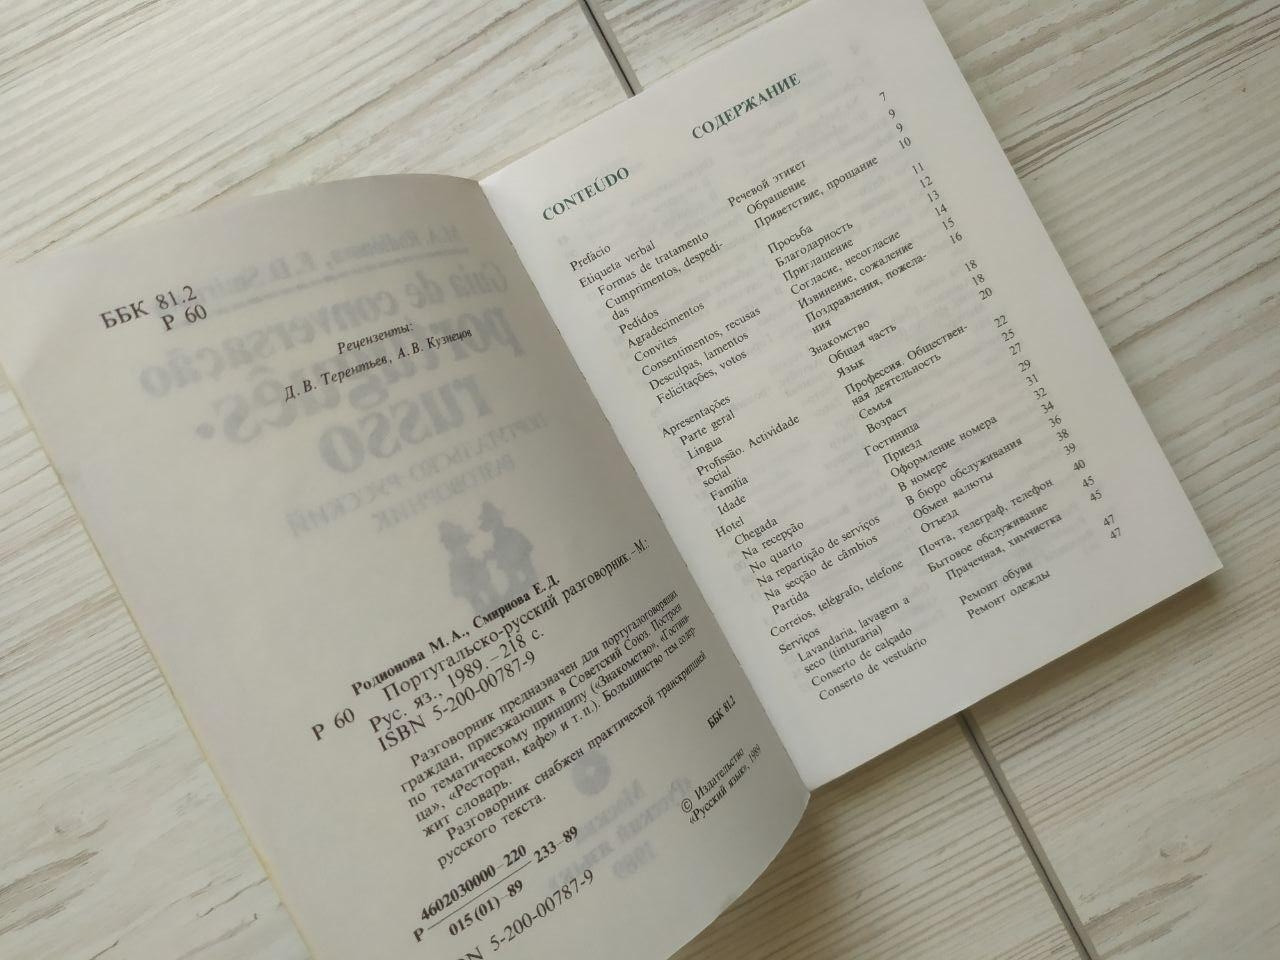 ББК 81.2
Р 60
Рецензенты:
Д. В. Терентьев, А. В. Кузнецов
Родионова М. А., Смирнова Е. Д.
Р 60 Португальско-русский разговорник.–М.:
Рус. яз., 1989.–218 с.
ISBN 5-200-00787-9
Разговорник предназначен для португалоговорящих
граждан, приезжающих в Советский Союз. Построен
по тематическому принципу («Знакомство», «Гостини-
ца», «Ресторан, кафе» и т. п.). Большинство тем содер-
жит словарь.
Разговорник снабжен практической транскрипцией
русского текста.
Р 4602030000–220
015(01)–89 233–89
ББК 81.2
ISBN 5-200-00787-9
© Издательство
«Русский язык», 1989
CONTEÚDO СОДЕРЖАНИЕ
Prefácio 7
Etiqueta verbal Речевой этикет 9
Formas de tratamento Обращение 9
Cumprimentos, despedi- Приветствие, прощание 10
das
Pedidos Просьба 11
Agradecimentos Благодарность 12
Convites Приглашение 13
Consentimentos, recusas Согласие, несогласие 14
Desculpas, lamentos Извинение, сожаление 15
Felicitações, votos Поздравления, пожела- 16
ния
Apresentações Знакомство 18
Parte geral Общая часть 18
Língua Язык 20
Profissão. Actividade Профессия. Обществен-
social ная деятельность 22
Família Семья 25
Idade Возраст 27
Hotel Гостиница 29
Chegada Приезд 31
Na recepção Оформление номера 32
No quarto В номере 34
Na repartição de serviços В бюро обслуживания 36
Na secção de câmbios Обмен валюты 38
Partida Отъезд 39
Correios, telégrafo, telefone Почта, телеграф, телефон 40
Serviços Бытовое обслуживание 45
Lavandaria, lavagem a Прачечная, химчистка 45
seco (tinturaria)
Conserto de calçado Ремонт обуви 47
Conserto de vestuário Ремонт одежды 47